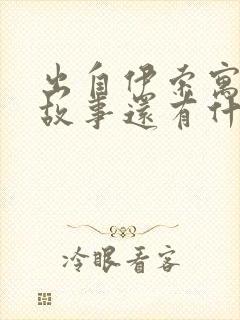 出自伊索寓
故事還有什
冷眼看客